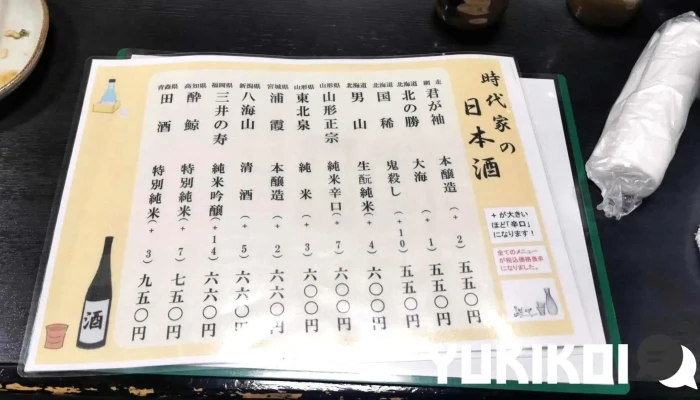 時代家の
日本酒
＋が大きい
ほど「辛口」
になります！
全てのメニュー
が税込価格表示
になりました。
網走 君が袖 本醸造（＋2）五五〇円
北海道 北の勝 大海（＋1）五五〇円
北海道 国稀 鬼殺し（＋10）五五〇円
北海道 男山 生酛純米（＋4）六〇〇円
山形県 山形正宗 純米辛口（＋7）六〇〇円
山形県 東北泉 純米（＋3）六〇〇円
宮城県 浦霞 本醸造（＋2）六六〇円
新潟県 八海山 清酒（＋5）六六〇円
福岡県 三井の寿 純米吟醸（＋14）六六〇円
高知県 酔鯨 特別純米（＋7）七五〇円
青森県 田酒 特別純米（＋3）九五〇円
酒
YUKIKOI